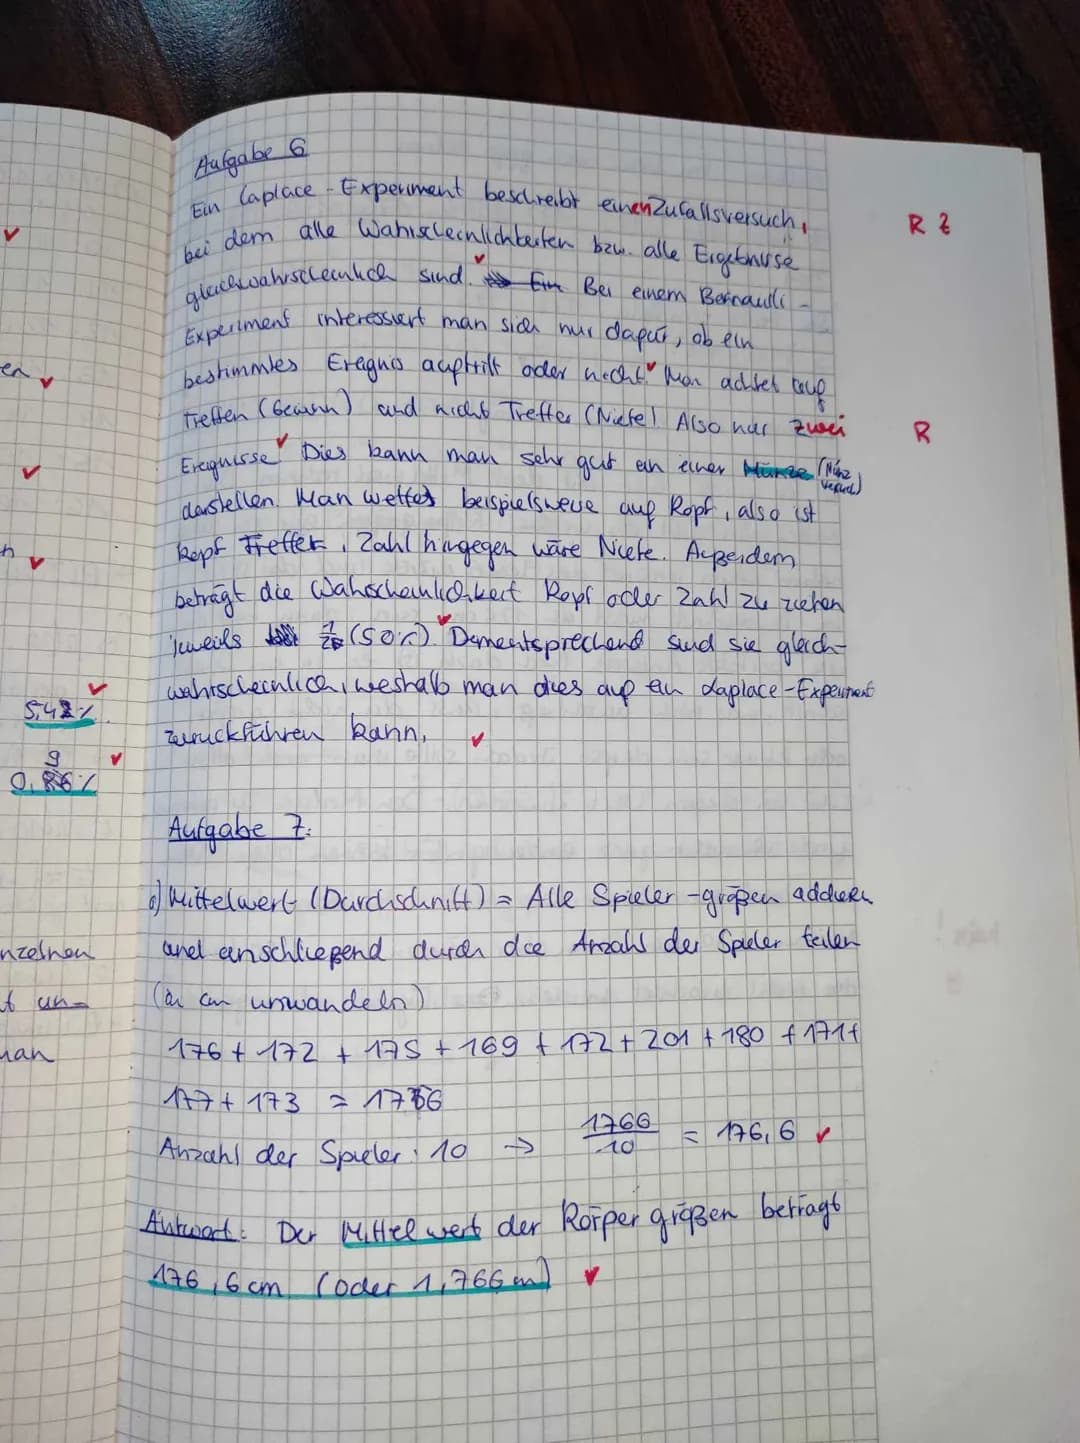 en
n
5,42%
9
0,86%
nzelnen
t un-
man
Aufgabe 6
Ein Laplace-Experiment beschreibt einen Zufallsversuch,
R Z
bei dem alle Wahrscheinlichkeiten bzw. alle Ergebnisse
gleichwahrscheinlich sind. Ein Bei einem Bernoulli-
Experiment interessiert man sich nur dafür, ob ein
bestimmtes Ereignis auftritt oder nicht. Man achtet auf
Treffen (Gewinn) und nicht Treffer (Niete). Also nur zwei
R
Ereignisse. Dies kann man sehr gut an einer Münze (Münz
verusch)
darstellen. Man wettet beispielsweise auf Kopf, also ist
Kopf Treffer, Zahl hingegen wäre Niete. Außerdem
beträgt die Wahscheinlichkeit Kopf oder Zahl zu ziehen
jeweils 1/2 (50%). Dementsprechend sind sie gleich-
wahrscheinlich, weshalb man dies auf ein Laplace-Experiment
zurückführen kann.
Aufgabe 7:
Mittelwert (Durchschnitt) = Alle Spieler-größen addieren
und anschließend durch die Anzahl der Spieler teilen
(in cm umwandeln)
176 + 172 + 175 + 169 + 172 + 201 + 180 + 171 +
177 + 173 = 1766
Anzahl der Spieler: 10 → 1766/10 = 176,6
Antwort: Der Mittelwert der Körpergrößen beträgt
176,6 cm (oder 1,766 m)